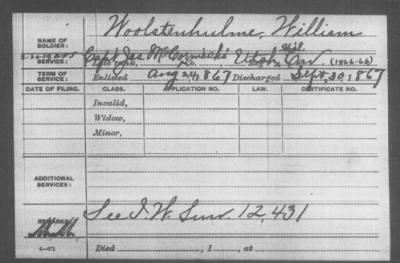 NAME OF SOLDIER: Woolstenhulme, William
SERVICE: Capt Jas McCormick's Utah Mil. Cav. (1866-68)
TERM OF SERVICE: Enlisted Aug 24, 1867 Discharged Sept. 30, 1867
DATE OF FILING. CLASS. APPLICATION NO. LAW. CERTIFICATE NO.
Invalid,
Widow,
Minor,
ADDITIONAL SERVICES:
See I. W. Surv. 12,431
REMARKS:
Died , 1 , at